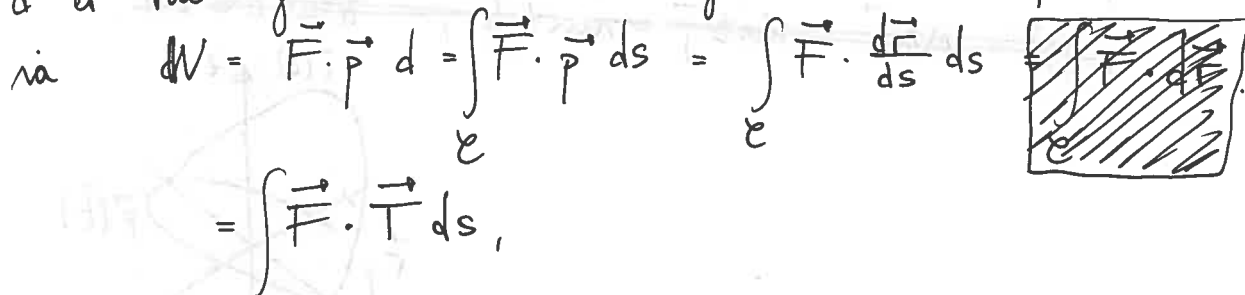 dW = \vec{F} \cdot \vec{p} d = \int_{\mathcal{C}} \vec{F} \cdot \vec{p} ds = \int_{\mathcal{C}} \vec{F} \cdot \frac{d\vec{r}}{ds} ds = \int_{\mathcal{C}} \vec{F} \cdot d\vec{r}.
= \int \vec{F} \cdot \vec{T} ds,